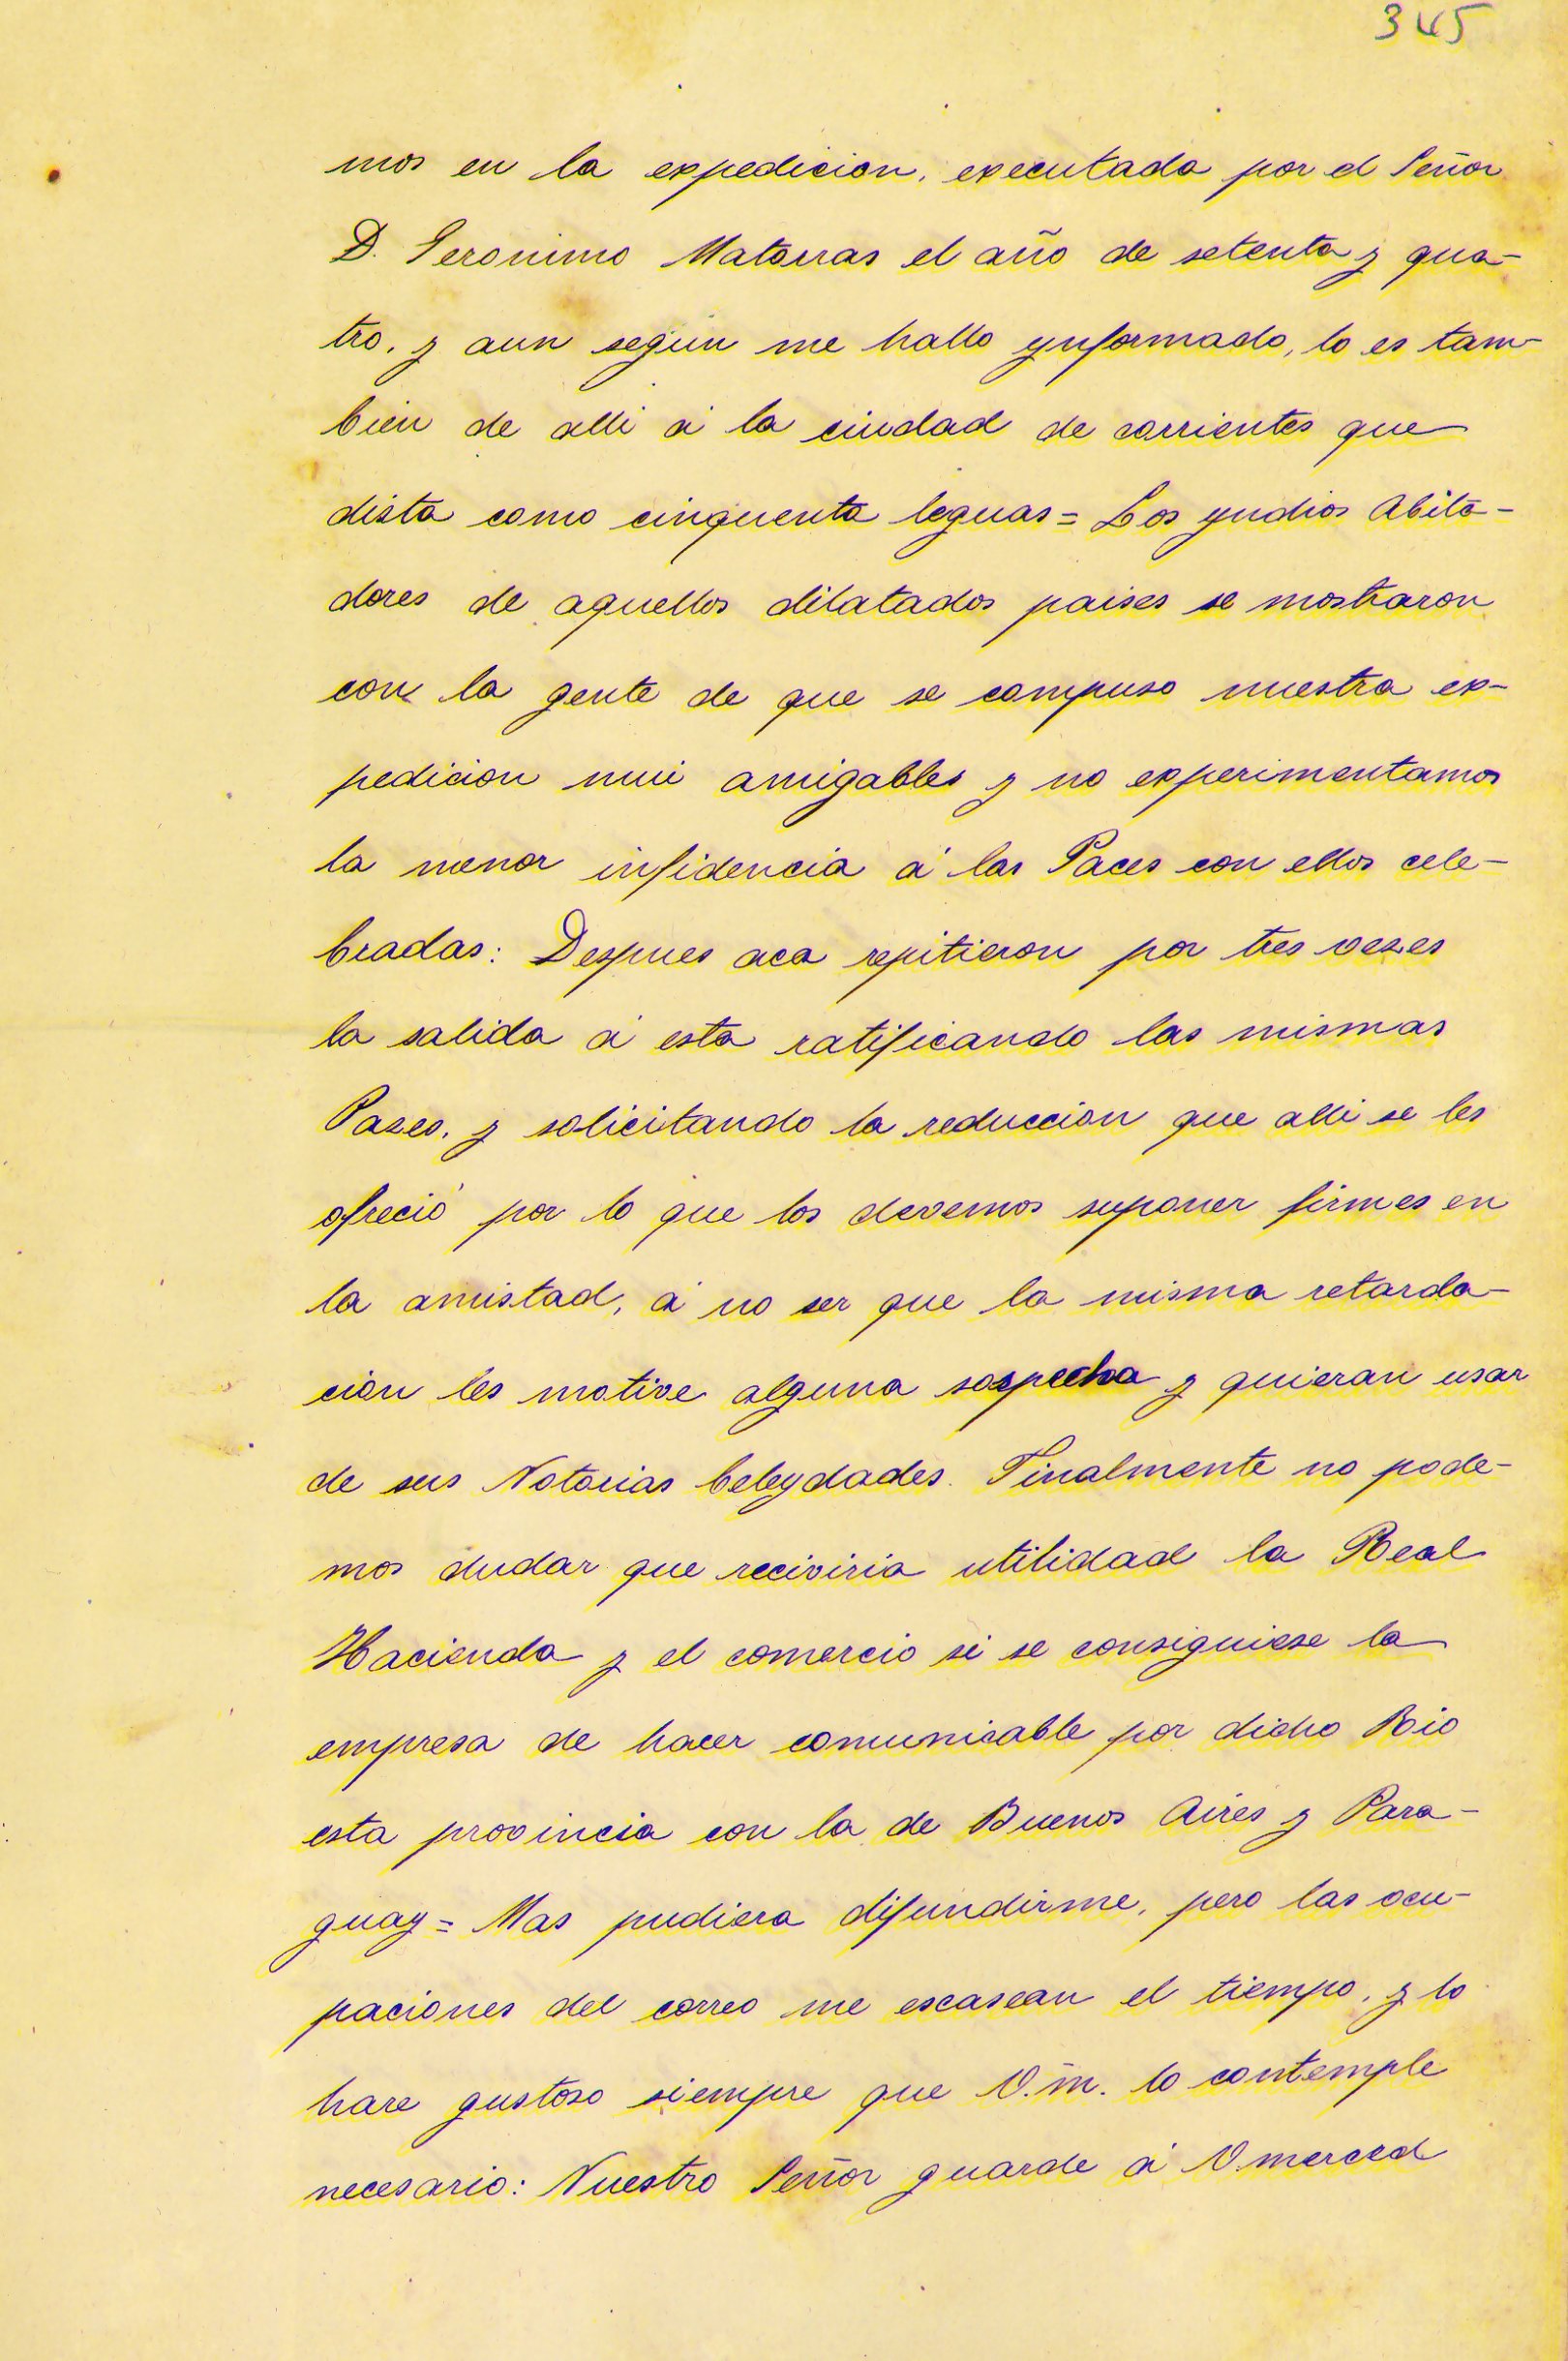 345
mos en la expedicion, executada por el Señor
D. Geronimo Matorras el año de setenta y qua-
tro, y aun según me hallo ynformado, lo es tam-
bien de alli á la ciudad de corrientes que
dista como cinquenta leguas = Los yndios Abita-
dores de aquellos dilatados paises se mostraron
con la gente de que se compuso nuestra ex-
pedicion mui amigables y no experimentamos
la menor infidencia á las Paces con ellos cele-
bradas: Despues aca repitieron por tres vezes
la salida á esta ratificando las mismas
Pazes, y solicitando la reduccion que alli se les
ofreció por lo que los devemos suponer firmes en
la amistad, á no ser que la misma retarda-
cion les motive alguna sospecha y quieran usar
de sus Notorias beleydades. Finalmente no pode-
mos dudar que reciviria utilidad la Real
Hacienda y el comercio si se consiguiese la
empresa de hacer comunicable por dicho Rio
esta provincia con la de Buenos Aires y Para-
guay = Mas pudiera difundirme, pero las ocu-
paciones del correo me escasean el tiempo, y lo
hare gustoso siempre que V. m. lo contemple
necesario: Nuestro Señor guarde á V. merced